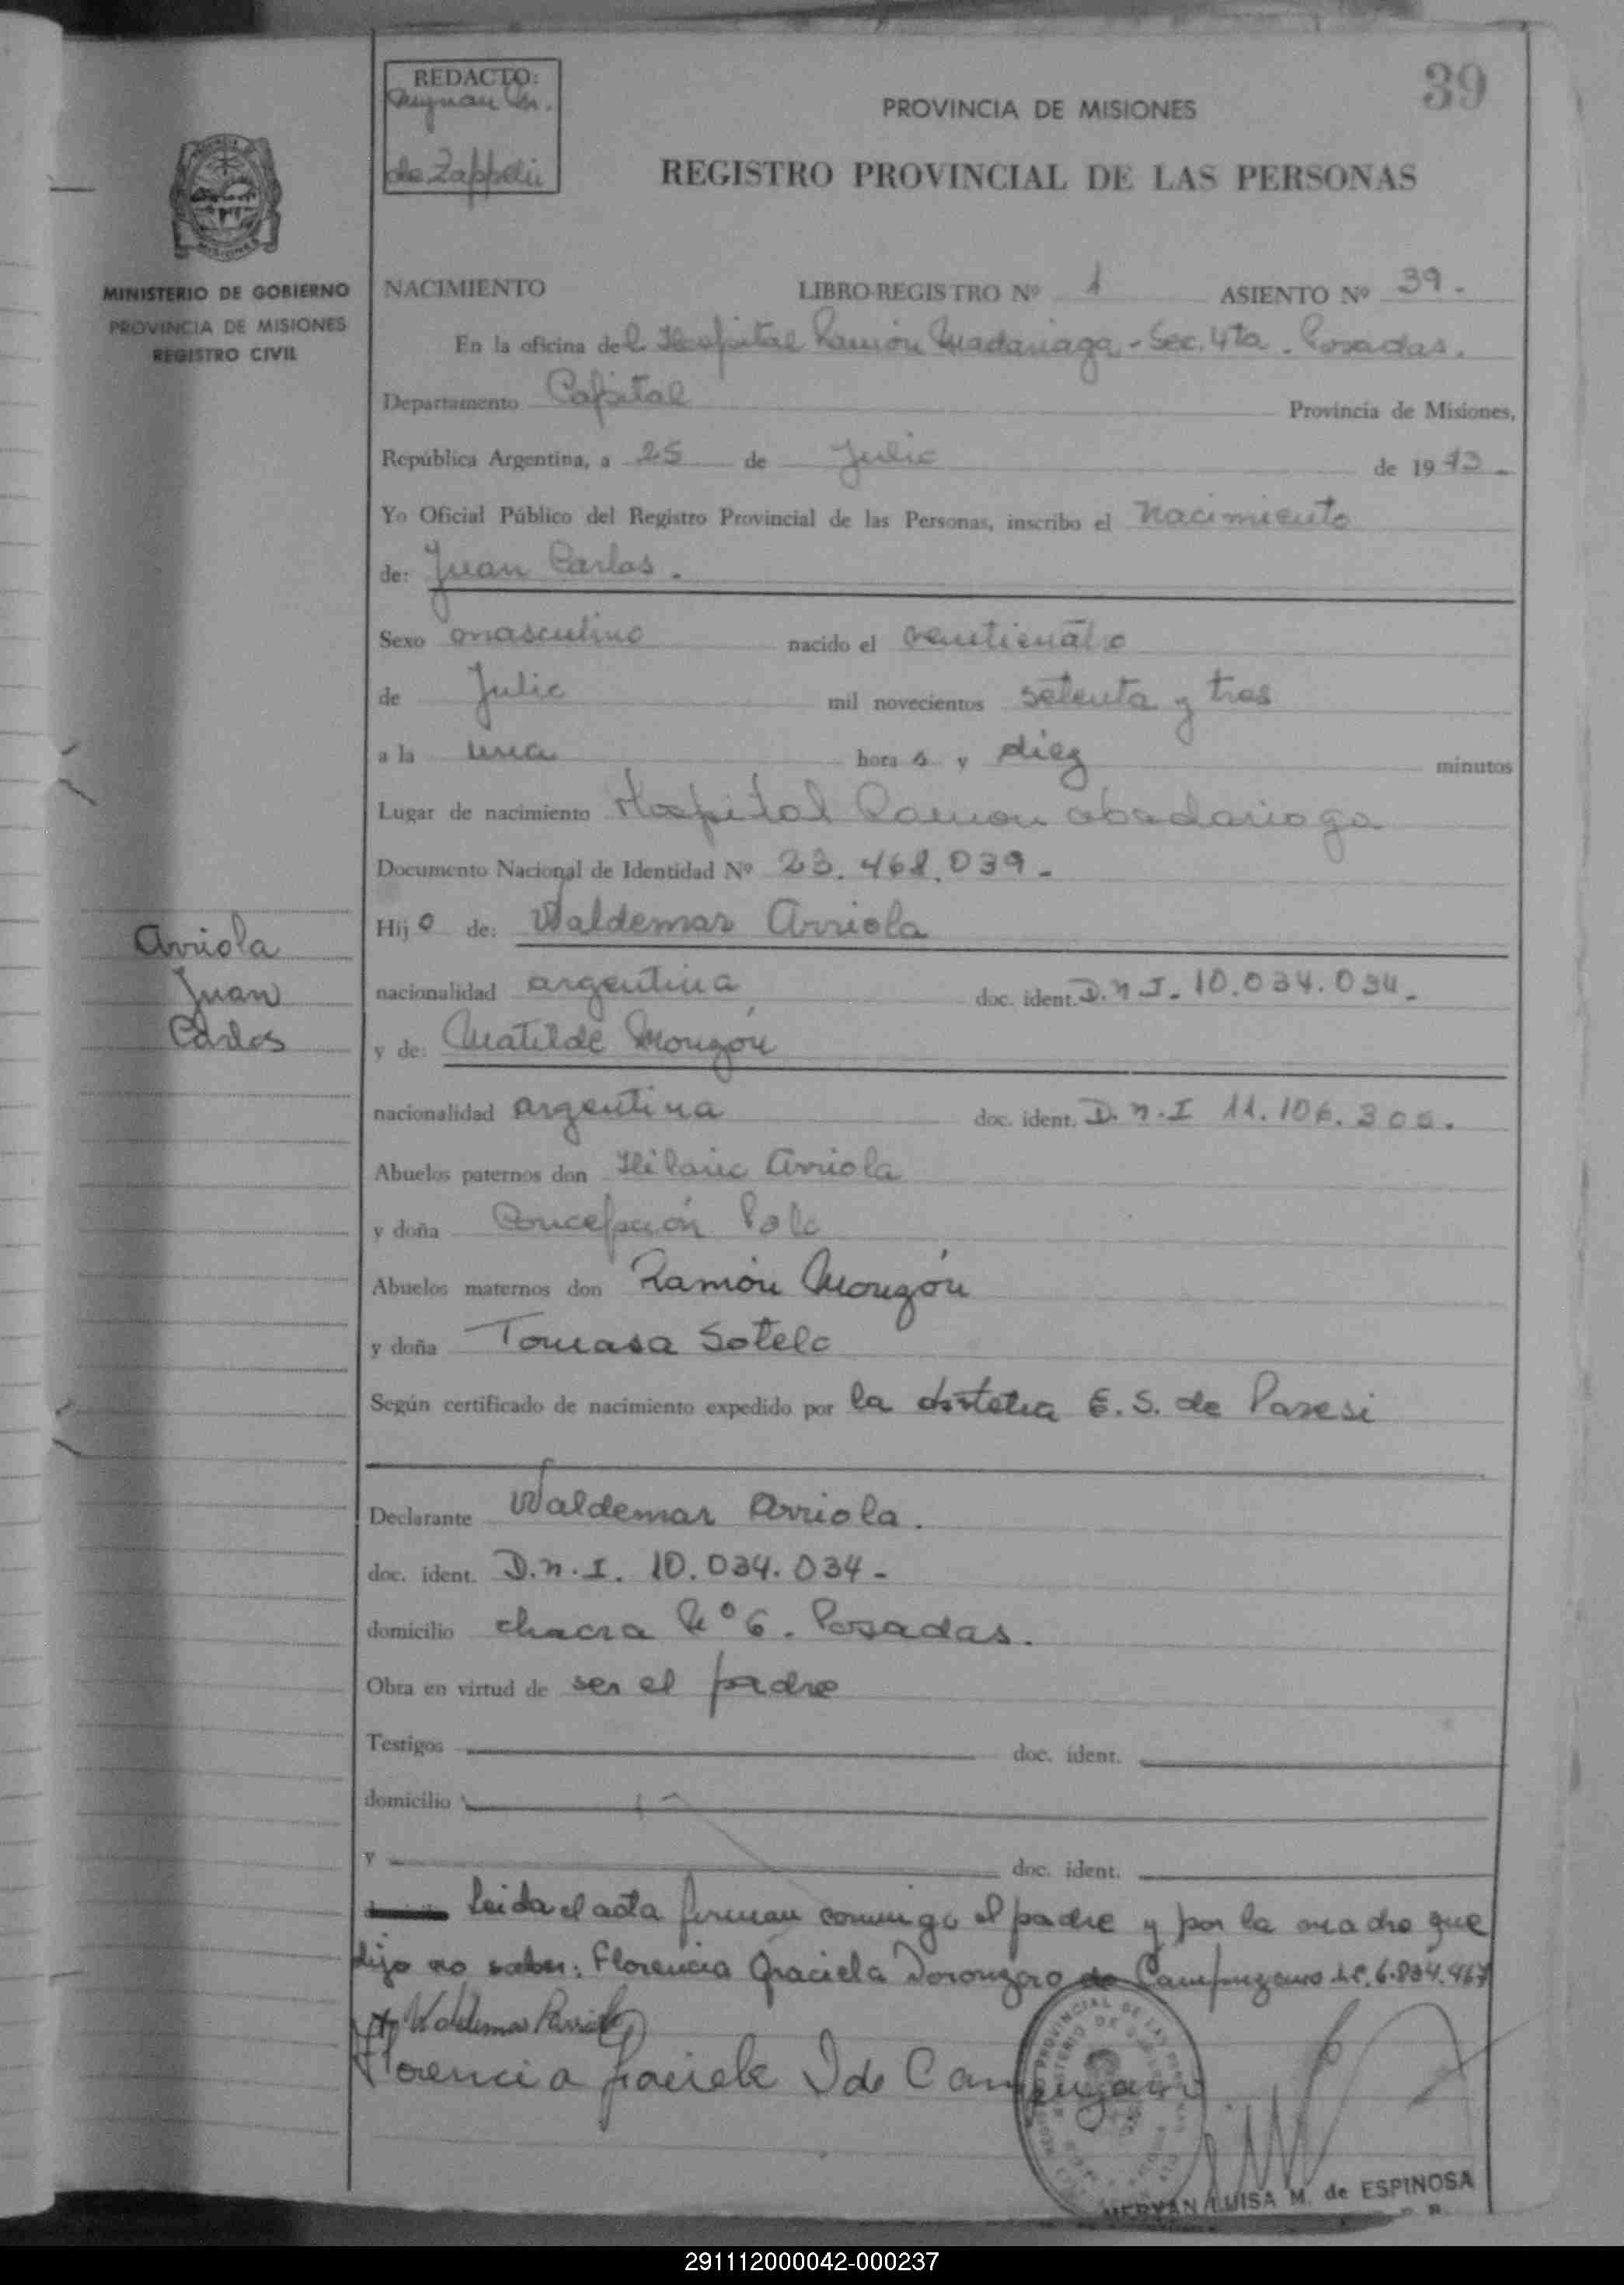 39
REDACTO:
de Zappelli
PROVINCIA DE MISIONES
REGISTRO PROVINCIAL DE LAS PERSONAS
MINISTERIO DE GOBIERNO
PROVINCIA DE MISIONES
REGISTRO CIVIL
NACIMIENTO LIBRO-REGISTRO Nº 1 ASIENTO Nº 39.
En la oficina del Hospital Ramón Madariaga - Sec. 4ta. Posadas.
Departamento Capital Provincia de Misiones,
República Argentina, a 25 de Julio de 1973.
Yo Oficial Público del Registro Provincial de las Personas, inscribo el Nacimiento
de: Juan Carlos.
Sexo masculino nacido el veinticuatro
de Julio mil novecientos setenta y tres
a la una hora s y diez minutos
Lugar de nacimiento Hospital Ramon Madariaga
Documento Nacional de Identidad Nº 23.468.039.
Hijo de: Waldemar Arriola
Arriola
Juan
Carlos
nacionalidad argentina doc. ident. D.N.I. 10.034.034.
y de: Matilde Monzón
nacionalidad argentina doc. ident. D.N.I 11.106.305.
Abuelos paternos don Hilario Arriola
y doña Concepción Polo
Abuelos maternos don Ramón Monzón
y doña Tomasa Sotelo
Según certificado de nacimiento expedido por la obstetra E. S. de Paresi
Declarante Waldemar Arriola.
doc. ident. D.N.I. 10.034.034-
domicilio chacra Nº 6. Posadas.
Obra en virtud de ser el padre
Testigos doc. ident.
domicilio
y doc. ident.
Leida el acta firman conmigo el padre y por la madre que
dijo no saber: Florencia Graciela de Campuzano L.C. 6.834.467
Waldemar Arriola
Florencia Graciela D de Campuzano
LUISA M. de ESPINOSA
291112000042-000237